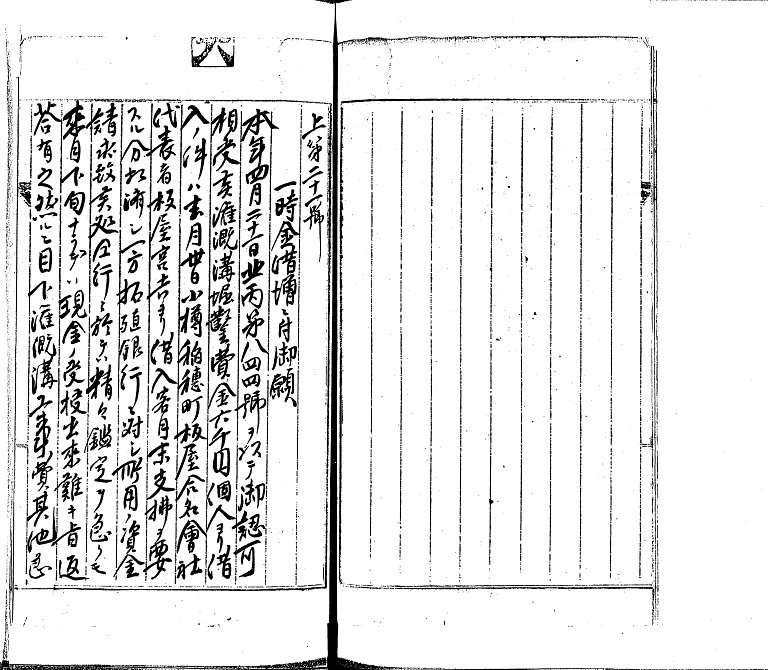 上第二十一號
一時金借増ニ付御願
本年四月二十一日北丙第八四四號ヲ以テ御認可
相受候灌漑溝堀鑿費金六千円個人ヨリ借
入ノ件ハ去月廿日小樽稲穂町板屋合名會社
代表者板屋宮吉ヨリ借入客月末支拂ヲ要
スル分相済シ一方拓殖銀行ニ対シ所用ノ資金
請求致候処同行ニ於テハ精々鑑定ヲ急クモ
来月下旬ナラデハ現金ノ受授出来難キ旨返
答有之然ルニ目下灌漑溝工事費其他急